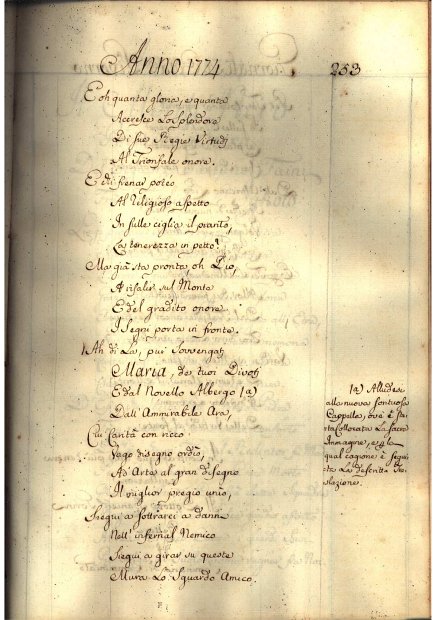 Anno 1774
253
E oh quanta gloria, e quanta
Accresce Lo Splendore
Di sue Regie Virtudj
Al Trionfale onore.
E chi frenar poteo
Al Religioso aspetto
In sulle ciglia il pianto,
La tenerezza in petto?
Ma già sta pronta, oh Dio,
A risalir sul Monte
E del gradito onore
I Segni porta in fronte.
Ah di La, pur sovvengati
Maria, de' tuoi Divoti
E dal Novello Albergo (a)
Dall' Ammirabile Ara,
Cui Carità con ricco
Vago disegno ordìo,
Ed Arte al gran disegno
Il miglior pregio unìo,
Siegui a sottrarci a danni
Dell' infernal Nemico
Siegui a girar su queste
Mura Lo Sguardo Amico.
(a) Alludesi
alla nuova sontuosa
Cappella, ove è sta-
ta Collocata La Sacra
Immagine, e per la
qual cagione è segui-
ta La descritta Tra-
slazione.